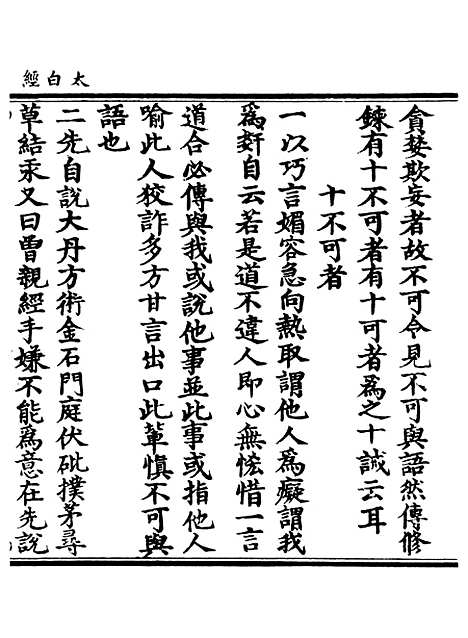 太白經
貪婪欺妄者故不可令見不可與語然傳修
鍊有十不可者有十可者爲之十誡云耳
十不可者
一以巧言媚容急向熱取謂他人爲癡謂我
爲姧自云若是道不違人即心無恡惜一言
道合必傳與我或說他事並此事或指他人
喻此人狡詐多方甘言出口此軰慎不可與
語也
二先自說大丹方術金石門庭伏砒撲茅尋
草結汞又曰曽親經手嫌不能爲意在先說